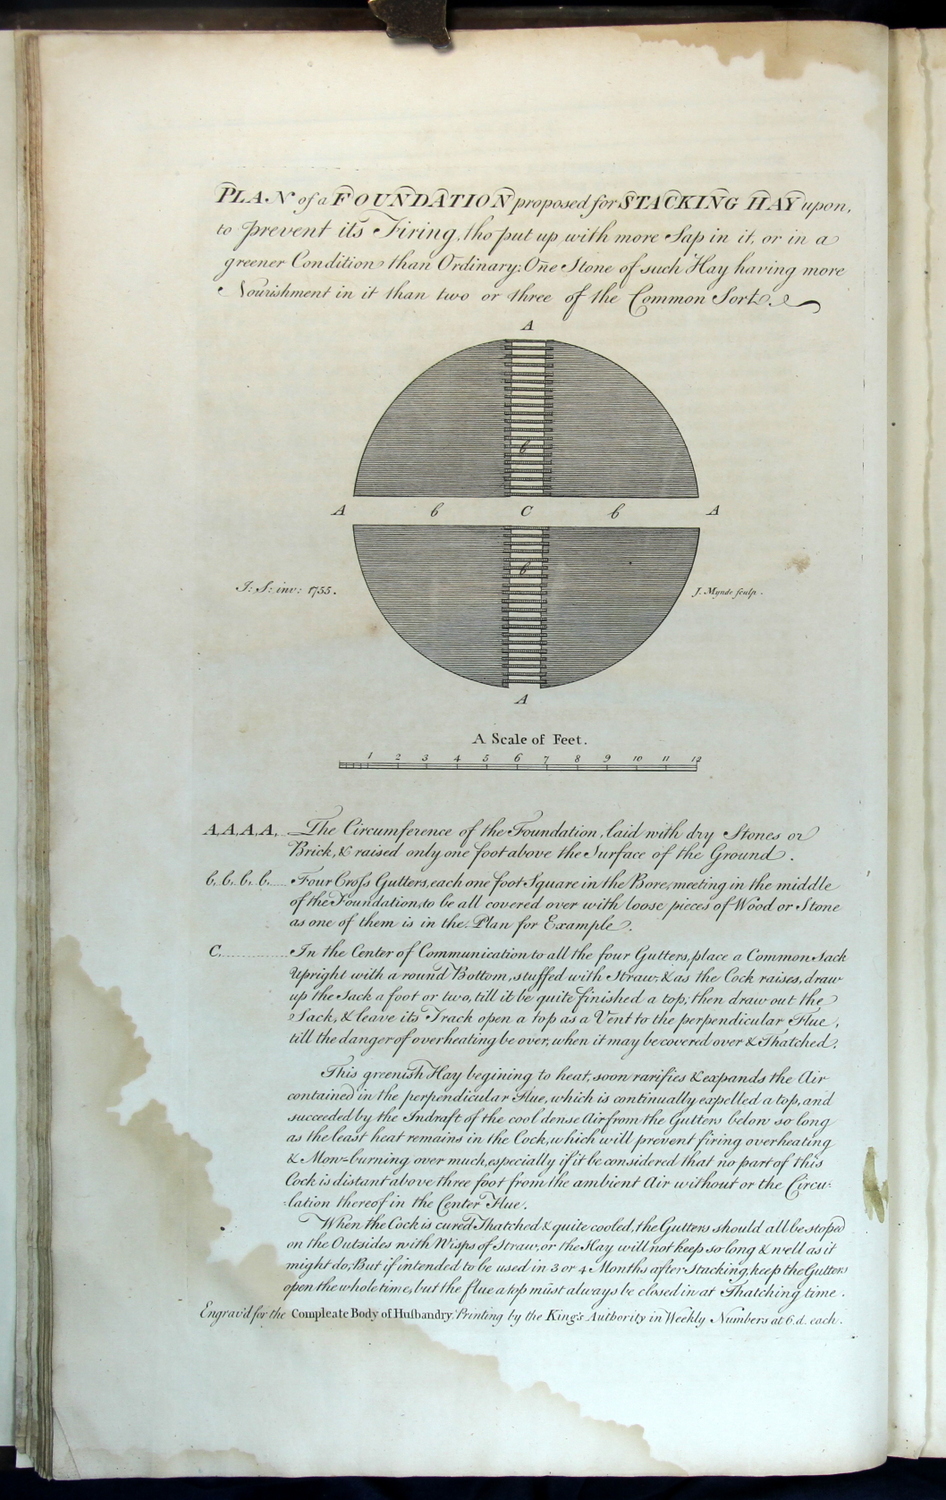 PLAN of a FOUNDATION proposed for STACKING HAY upon,
to prevent its Firing, tho put up with more Sap in it, or in a
greener Condition than Ordinary; One Stone of such Hay having more
Nourishment in it than two or three of the Common Sort.
A
b
A b C b A
b
J: S: inv: 1755. J. Mynde sculp.
A
A Scale of Feet.
1 2 3 4 5 6 7 8 9 10 11 12
A, A, A, A, The Circumference of the Foundation, laid with dry Stones or
Brick, & raised only one foot above the Surface of the Ground.
b. b. b. b. Four Cross Gutters, each one foot Square in the Bore, meeting in the middle
of the Foundation, to be all covered over with loose pieces of Wood or Stone
as one of them is in the Plan for Example.
C. In the Center of Communication to all the four Gutters, place a Common Sack
Upright with a round Bottom, stuffed with Straw; & as the Cock raises, draw
up the Sack a foot or two, till it be quite finished a top; then draw out the
Sack, & leave its Track open a top as a Vent to the perpendicular Flue,
till the danger of overheating be over, when it may be covered over & Thatched.
This greenish Hay begining to heat, soon rarifies & expands the Air
contained in the perpendicular Flue, which is continually expelled a top, and
succeeded by the Indraft of the cool dense Air from the Gutters below so long
as the least heat remains in the Cock, which will prevent firing overheating
& Mow-burning over much, especially if it be considered that no part of this
Cock is distant above three foot from the ambient Air without or the Circu-
-lation thereof in the Center Flue.
When the Cock is cured Thatched & quite cooled, the Gutters should all be stoped
on the Outsides with Wisps of Straw, or the Hay will not keep so long & well as it
might do; But if intended to be used in 3 or 4 Months after Stacking, keep the Gutters
open the whole time, but the flue a top must always be closed in at Thatching time.
Engrav'd for the Compleate Body of Husbandry. Printing by the King's Authority in Weekly Numbers at 6.d. each.